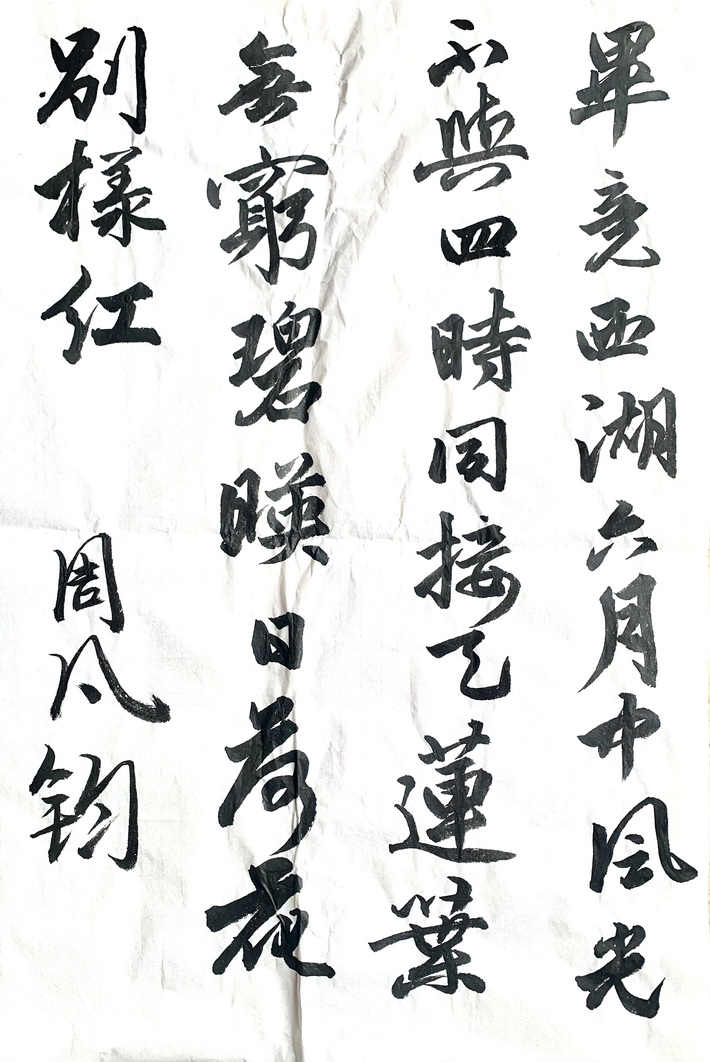 畢竟西湖六月中風光
不與四時同接天蓮葉
無窮碧暎日荷花
別樣紅
周 鈞